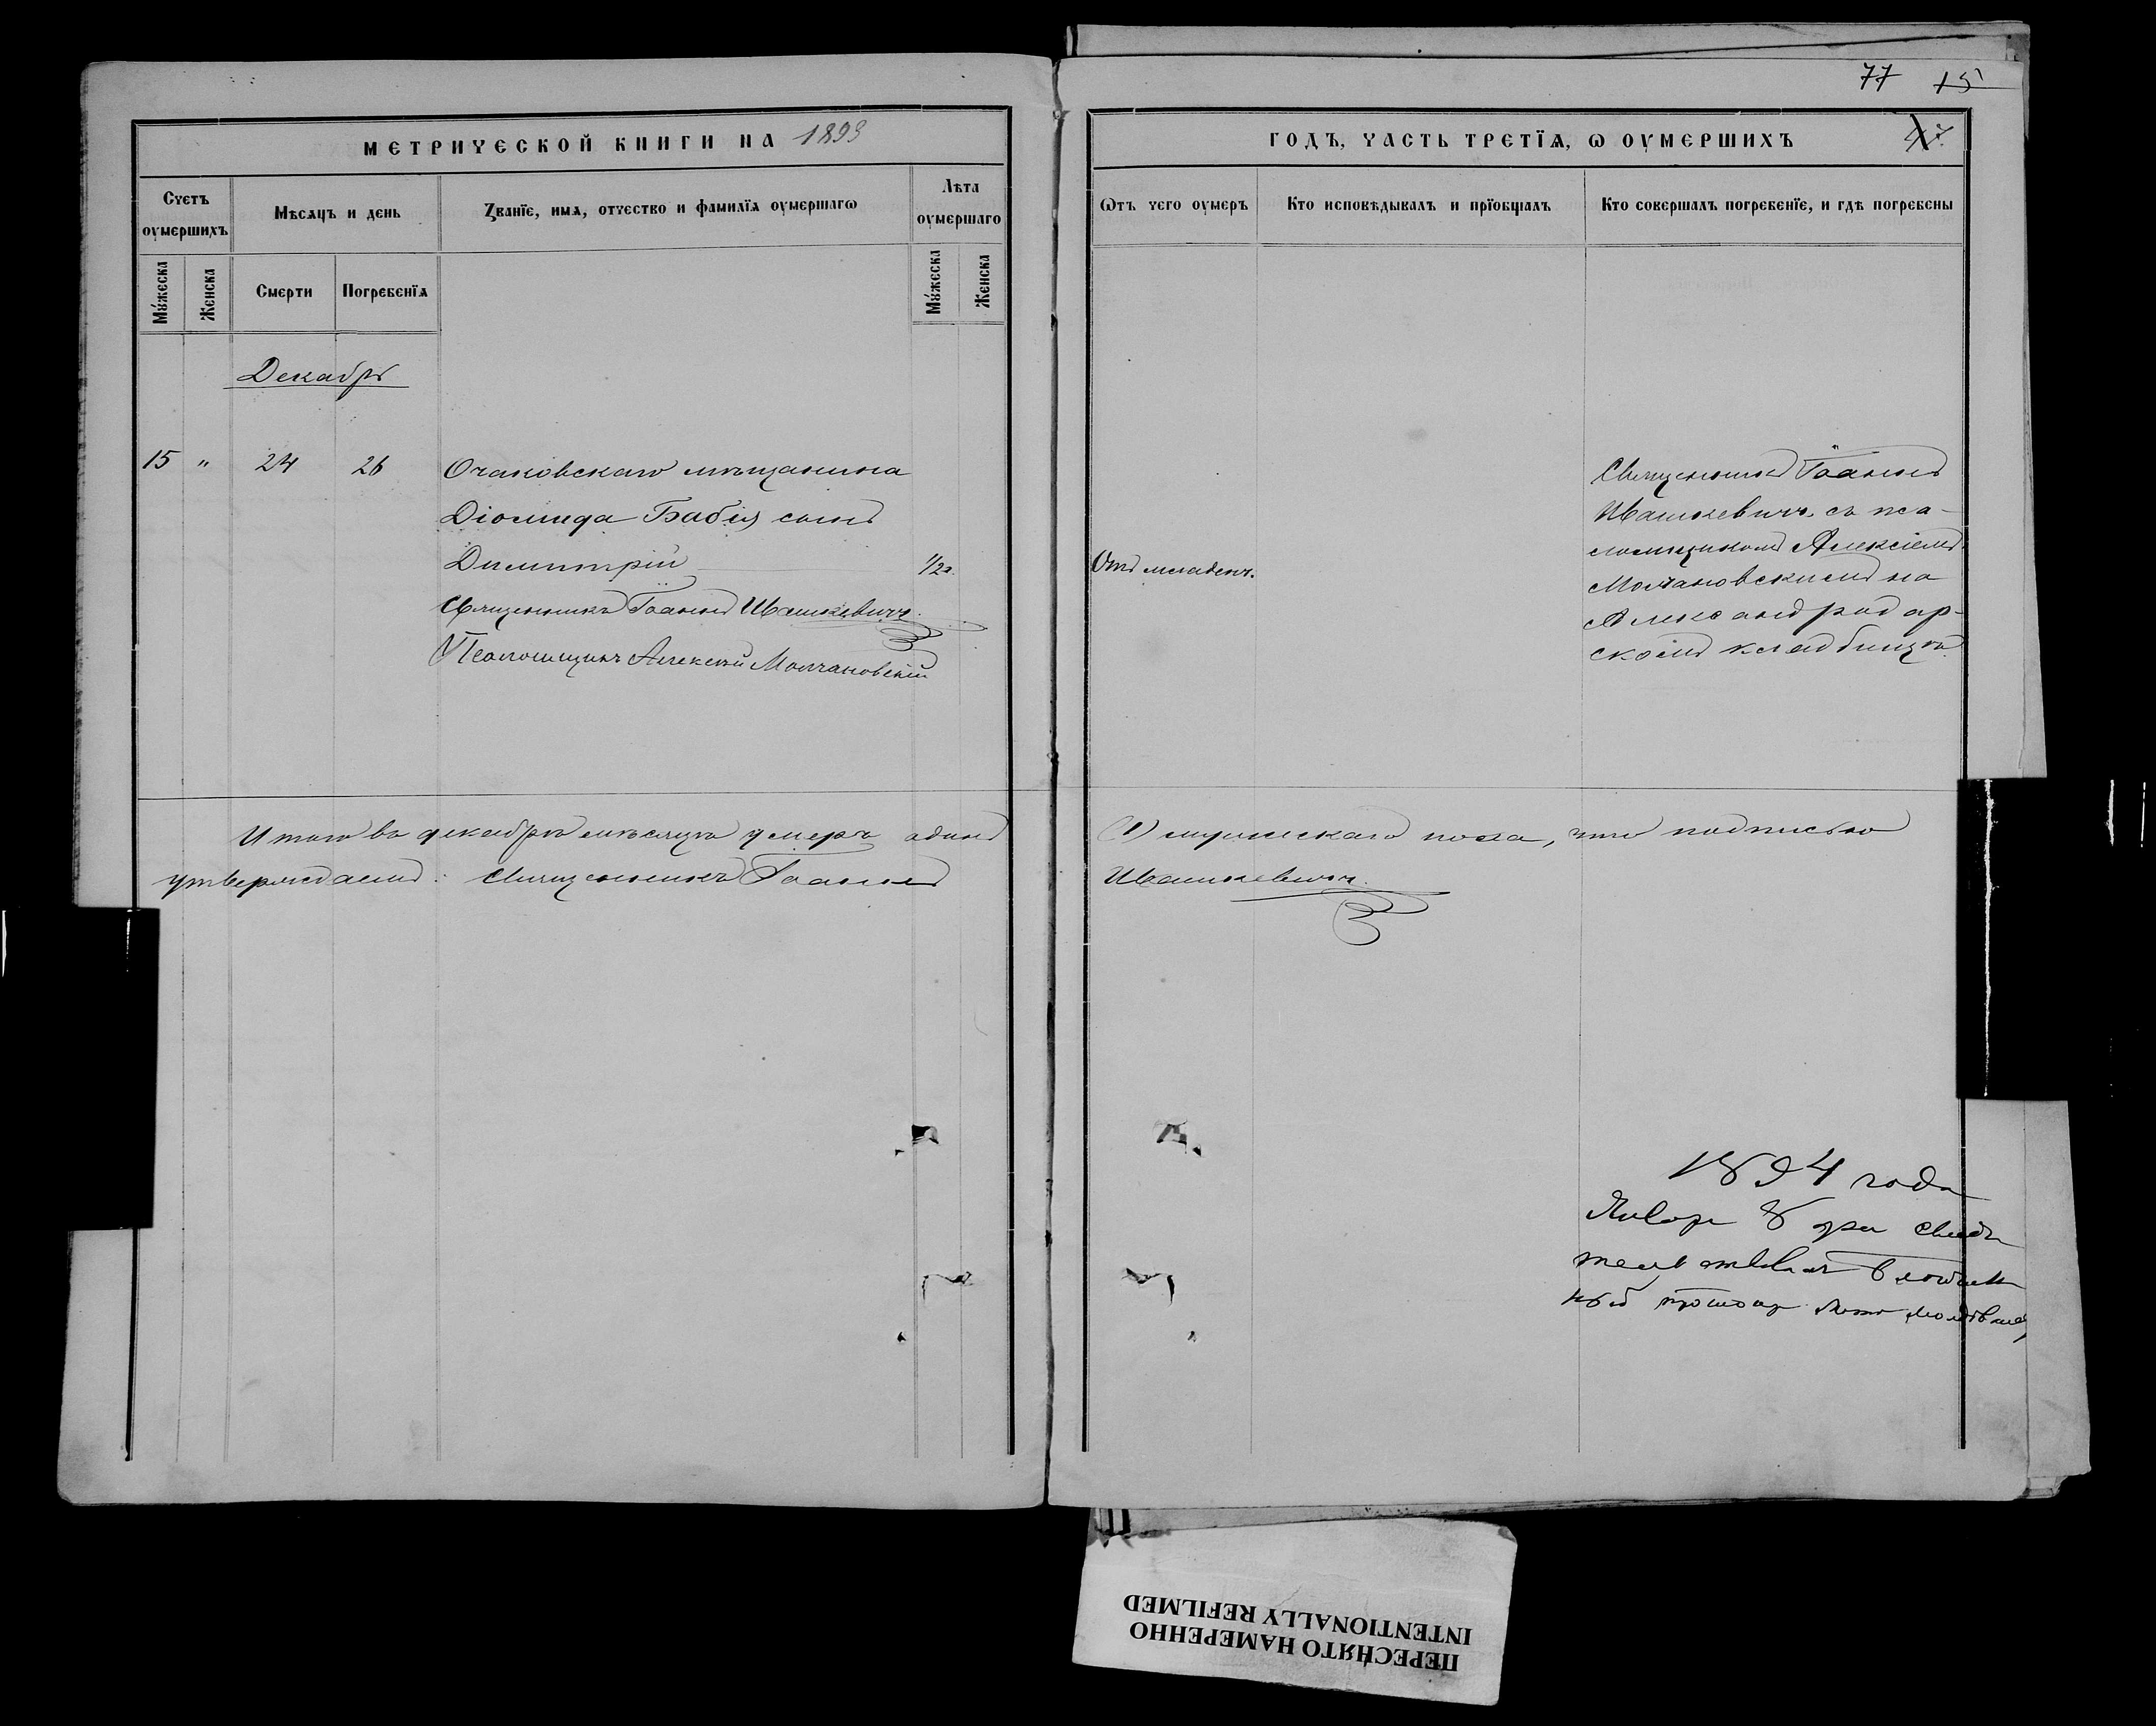 77 15
МЕТРИЧЕСКОЙ КНИГИ НА 1893
ГОДЪ, ЧАСТЬ ТРЕТЇѦ, Ѡ ОУМЕРШИХЪ
Счетъ оумершихъ
Мѣсѧцъ и день
Званїе, имѧ, отчество и фамилїѧ оумершагѡ
Лѣта оумершаго
Ѿтъ чего оумеръ
Кто исповѣдывалъ и прїобщалъ
Кто совершалъ погребенїе, и гдѣ погребены
Мужеска
Женска
Смерти
Погребенїѧ
Мужеска
Женска
Декабрь
15 " 24 26 Очаковскаго мѣщанина
Діомида Бабія сынъ
Димитрій 1/2 г.
Священникъ Іоаннъ Ивашкевичъ.
Псаломщикъ Алексѣй Молчановскій
Отъ младенч.
Священникъ Іоаннъ
Ивашкевичъ съ пса-
ломщикомъ Алексіемъ
Молчановскимъ на
Александродар-
скомъ кладбищѣ.
Итого въ декабрѣ мѣсяцѣ умеръ одинъ (1) мужескаго пола, что подписью
утверждаемъ: Священникъ Іоаннъ Ивашкевичъ.
1894 года
Января 8 дня свидѣ
тельствовалъ Благочин
ный протоіер
ПЕРЕСНЯТО НАМЕРЕННО
INTENTIONALLY REFILMED